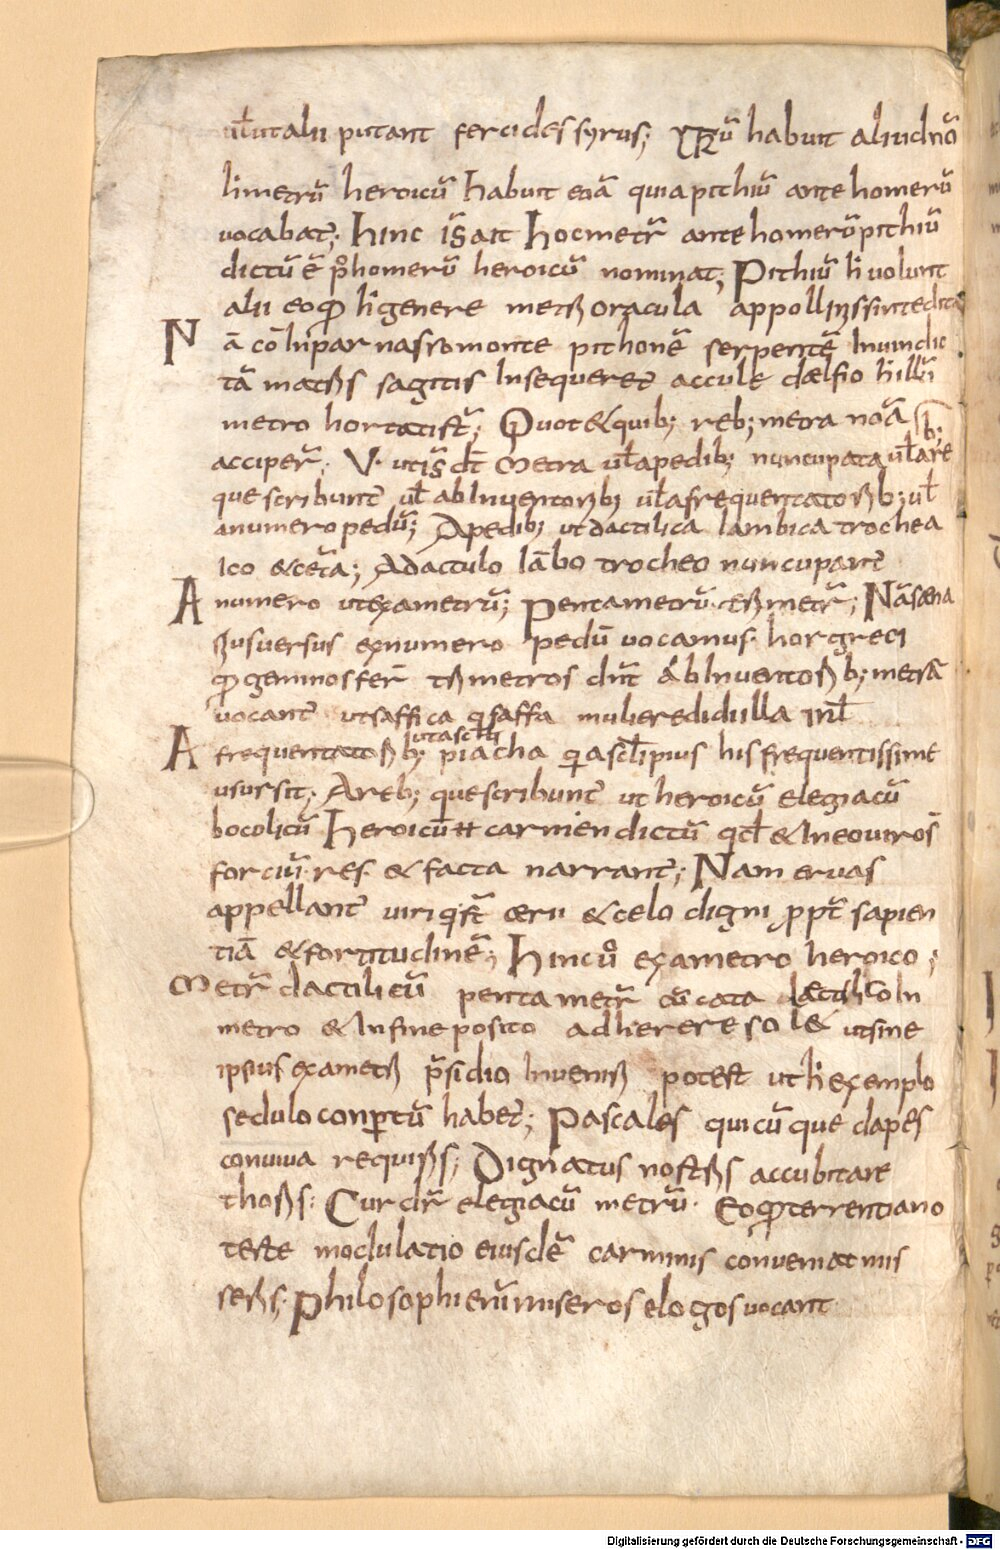 ul̄ ut alii putant fercides syrus; XPŪ habuit aliud nō
h̄ metrū heroicū habuit etiā quia pithiū ante homerū
vocabat̄; Hinc iš ait Hoc metr̄ ante homerū pithiū
dictū ē p̄ homerū heroicū nominat̄; Pithiū h̄ volunt
alii eo qđ h̄ genere metri oracula appollinis sint edita
Nā cō h̄ in parnasso monte pithonē serpentē In vindic
tā matris sagittis Insequeret̄ accule delfio h̄ illū
metro hortati st̄; Quot & quib; reb; metra noā
acciper̄; V· ut iš dt̄ Metra ul̄ a pedib; nuncupata ul̄ a re b;
que scribunt̄ ul̄ ab Inventorib; ul̄ a frequentatorib; ul̄
a numero pedū; A pedib; ut dactilica Iambica trochea
Ico & cet̄a; A dactulo Iābo trocheo nuncupant̄
A numero ut exametrū; Pentametrū trimetr̄; Nā sena
rius versus ex numero pedū vocamus· hos greci
qđ geminos fer̄ trimetros dūt Ab Inventorib; metrā
vocant̄ ut saffica q̄ saffa mulier edidit illa Ml̄
A frequentatorib; ut ascl̄i piacha q̄ ascl̄ipius his frequentissime
usus sit; A reb; que scribunt̄ ut heroicū elegiacū
bocolicū Heroicū tt carmen dictū qđ & In eo viros̄
forciū res & facta narrant̄; Nam eroas
appellant̄ viri q̄ st̄ ærii & celo digni ppt̄ sapien
tiā & fortitudinē; Hinc v̊ exametro heroico;
Metr̄ dactilicū pentametr̄ dactilico In
metro & In fine posito adherere sol& ut sine
ipsius exametri p̄sidio Inveniri potest ut h̄ exemplo
sedulo conp̄tū habet̄; Pascales quicū que dapes
conviva requiris; Dignatus nostris accubitare
thoris: Cur dir̄ elegiacū metrū· Eo qđ terrentiano
teste modulatio eiusdē carminis conveniat mis
seris; Philosophi enim miseros elogos vocant
Digitalisierung gefördert durch die Deutsche Forschungsgemeinschaft - DFG